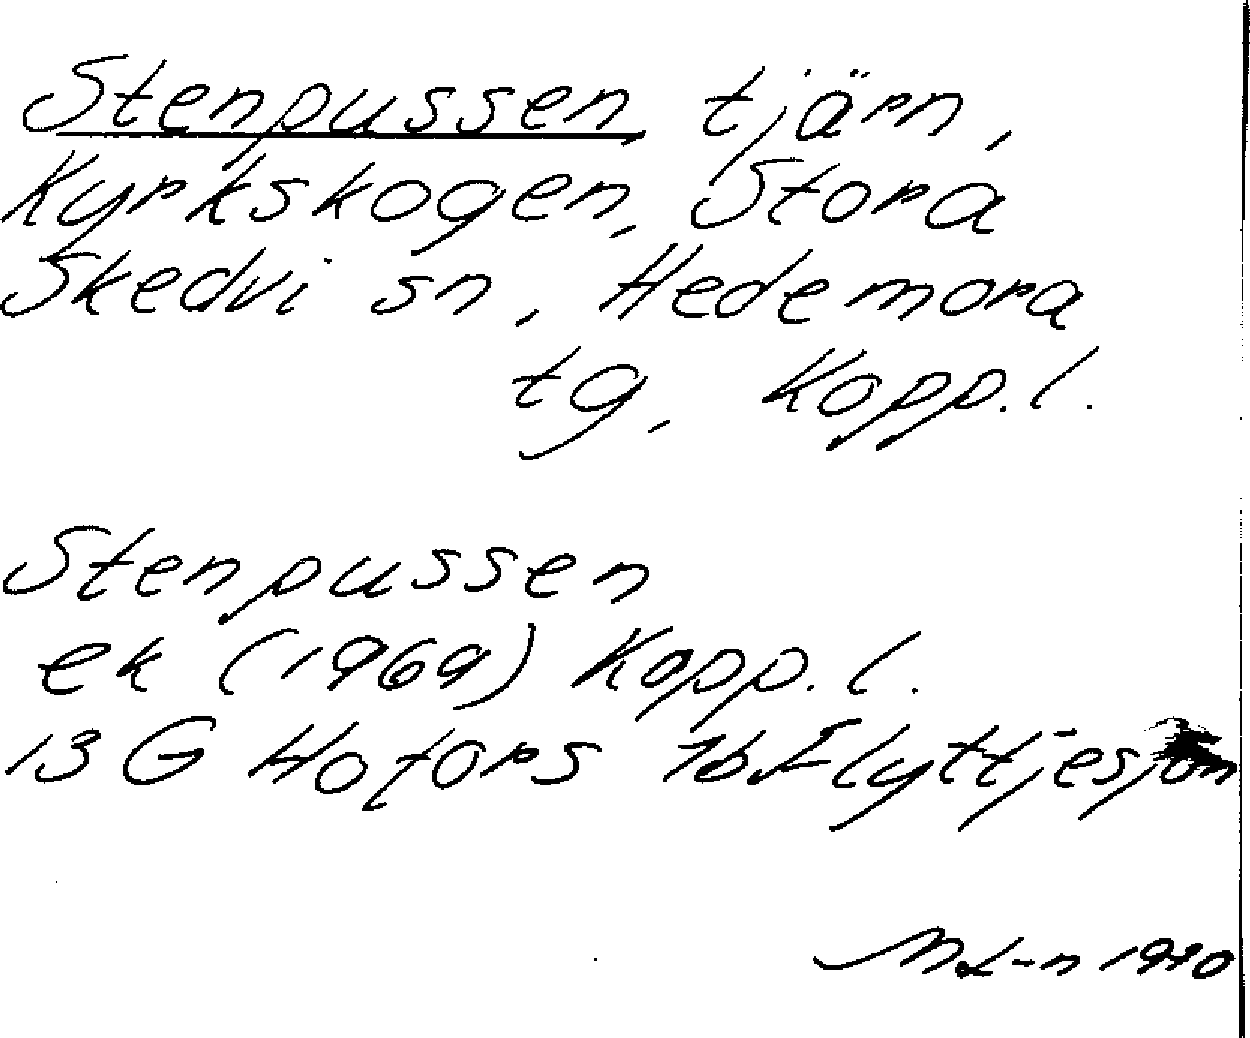 Stenpussen, tjärn,
Kyrkskogen, Stora
Skedvi sn, Hedemora
tg, Kopp.l.
Stenpussen
ek (1969) Kopp.l.
13 G Hofors 7b Flyttjesjön
1970